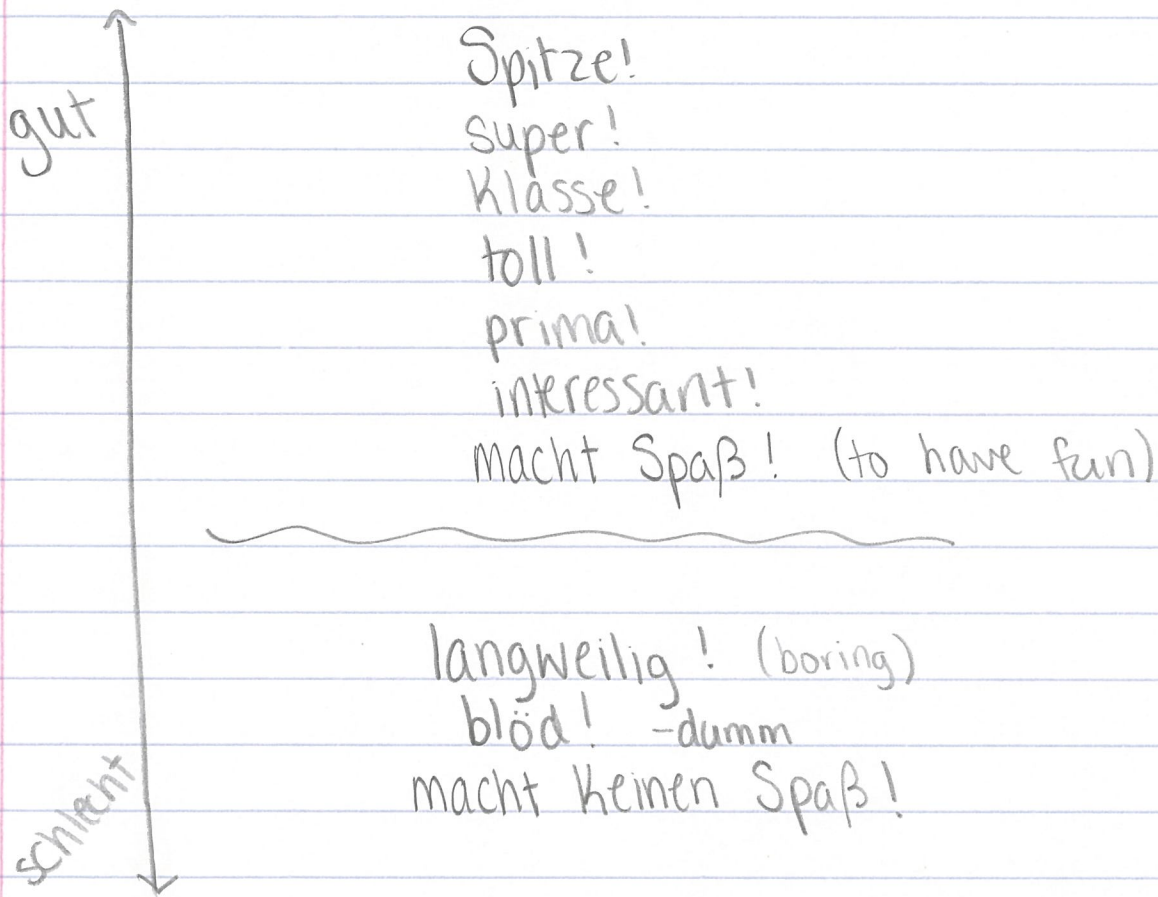 gut
Spitze!
super!
Klasse!
toll!
prima!
interessant!
macht Spaß! (to have fun)
langweilig! (boring)
blöd! -dumm
macht Keinen Spaß!
schlecht